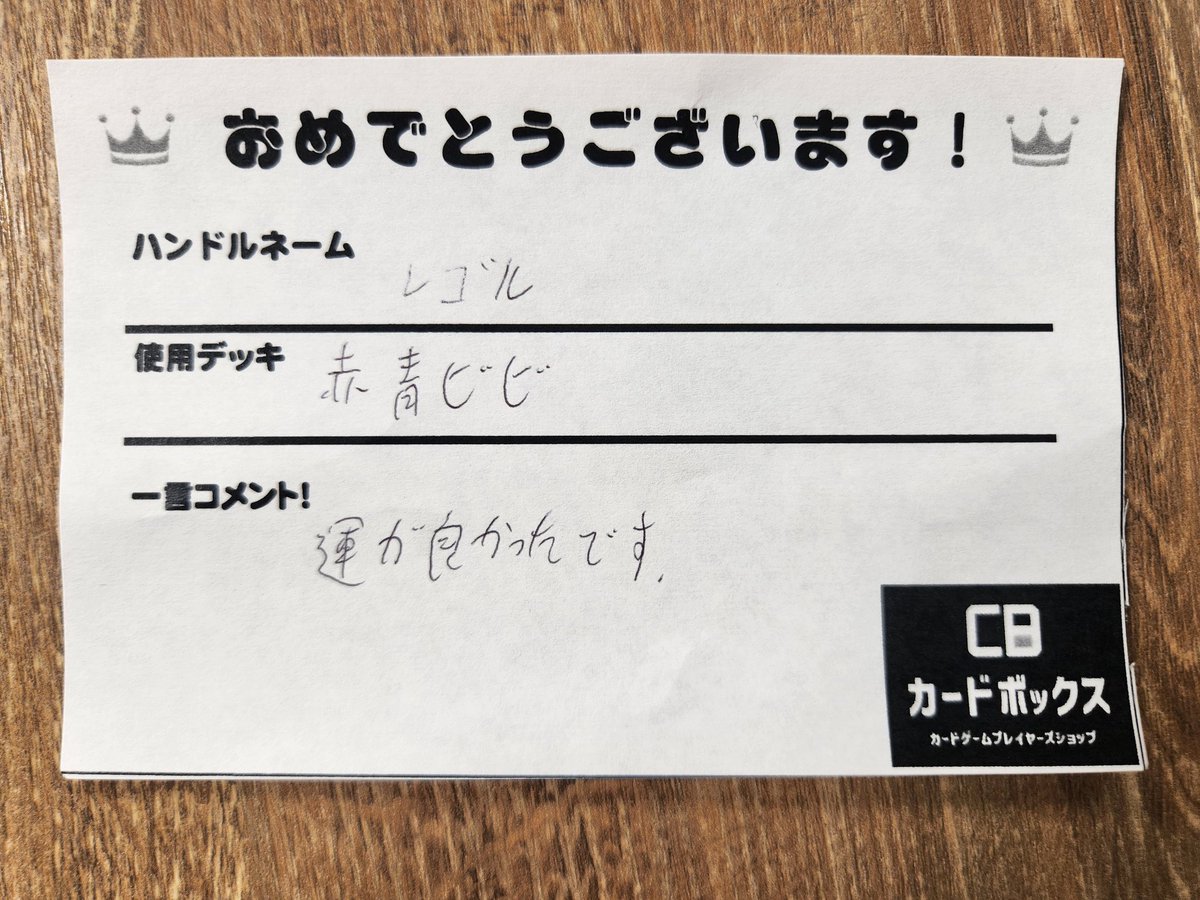 おめでとうございます！
ハンドルネーム
レゴル
使用デッキ
赤青ビビ
一言コメント!
運が良かったです.
CB
カードボックス
カードゲームプレイヤーズショップ